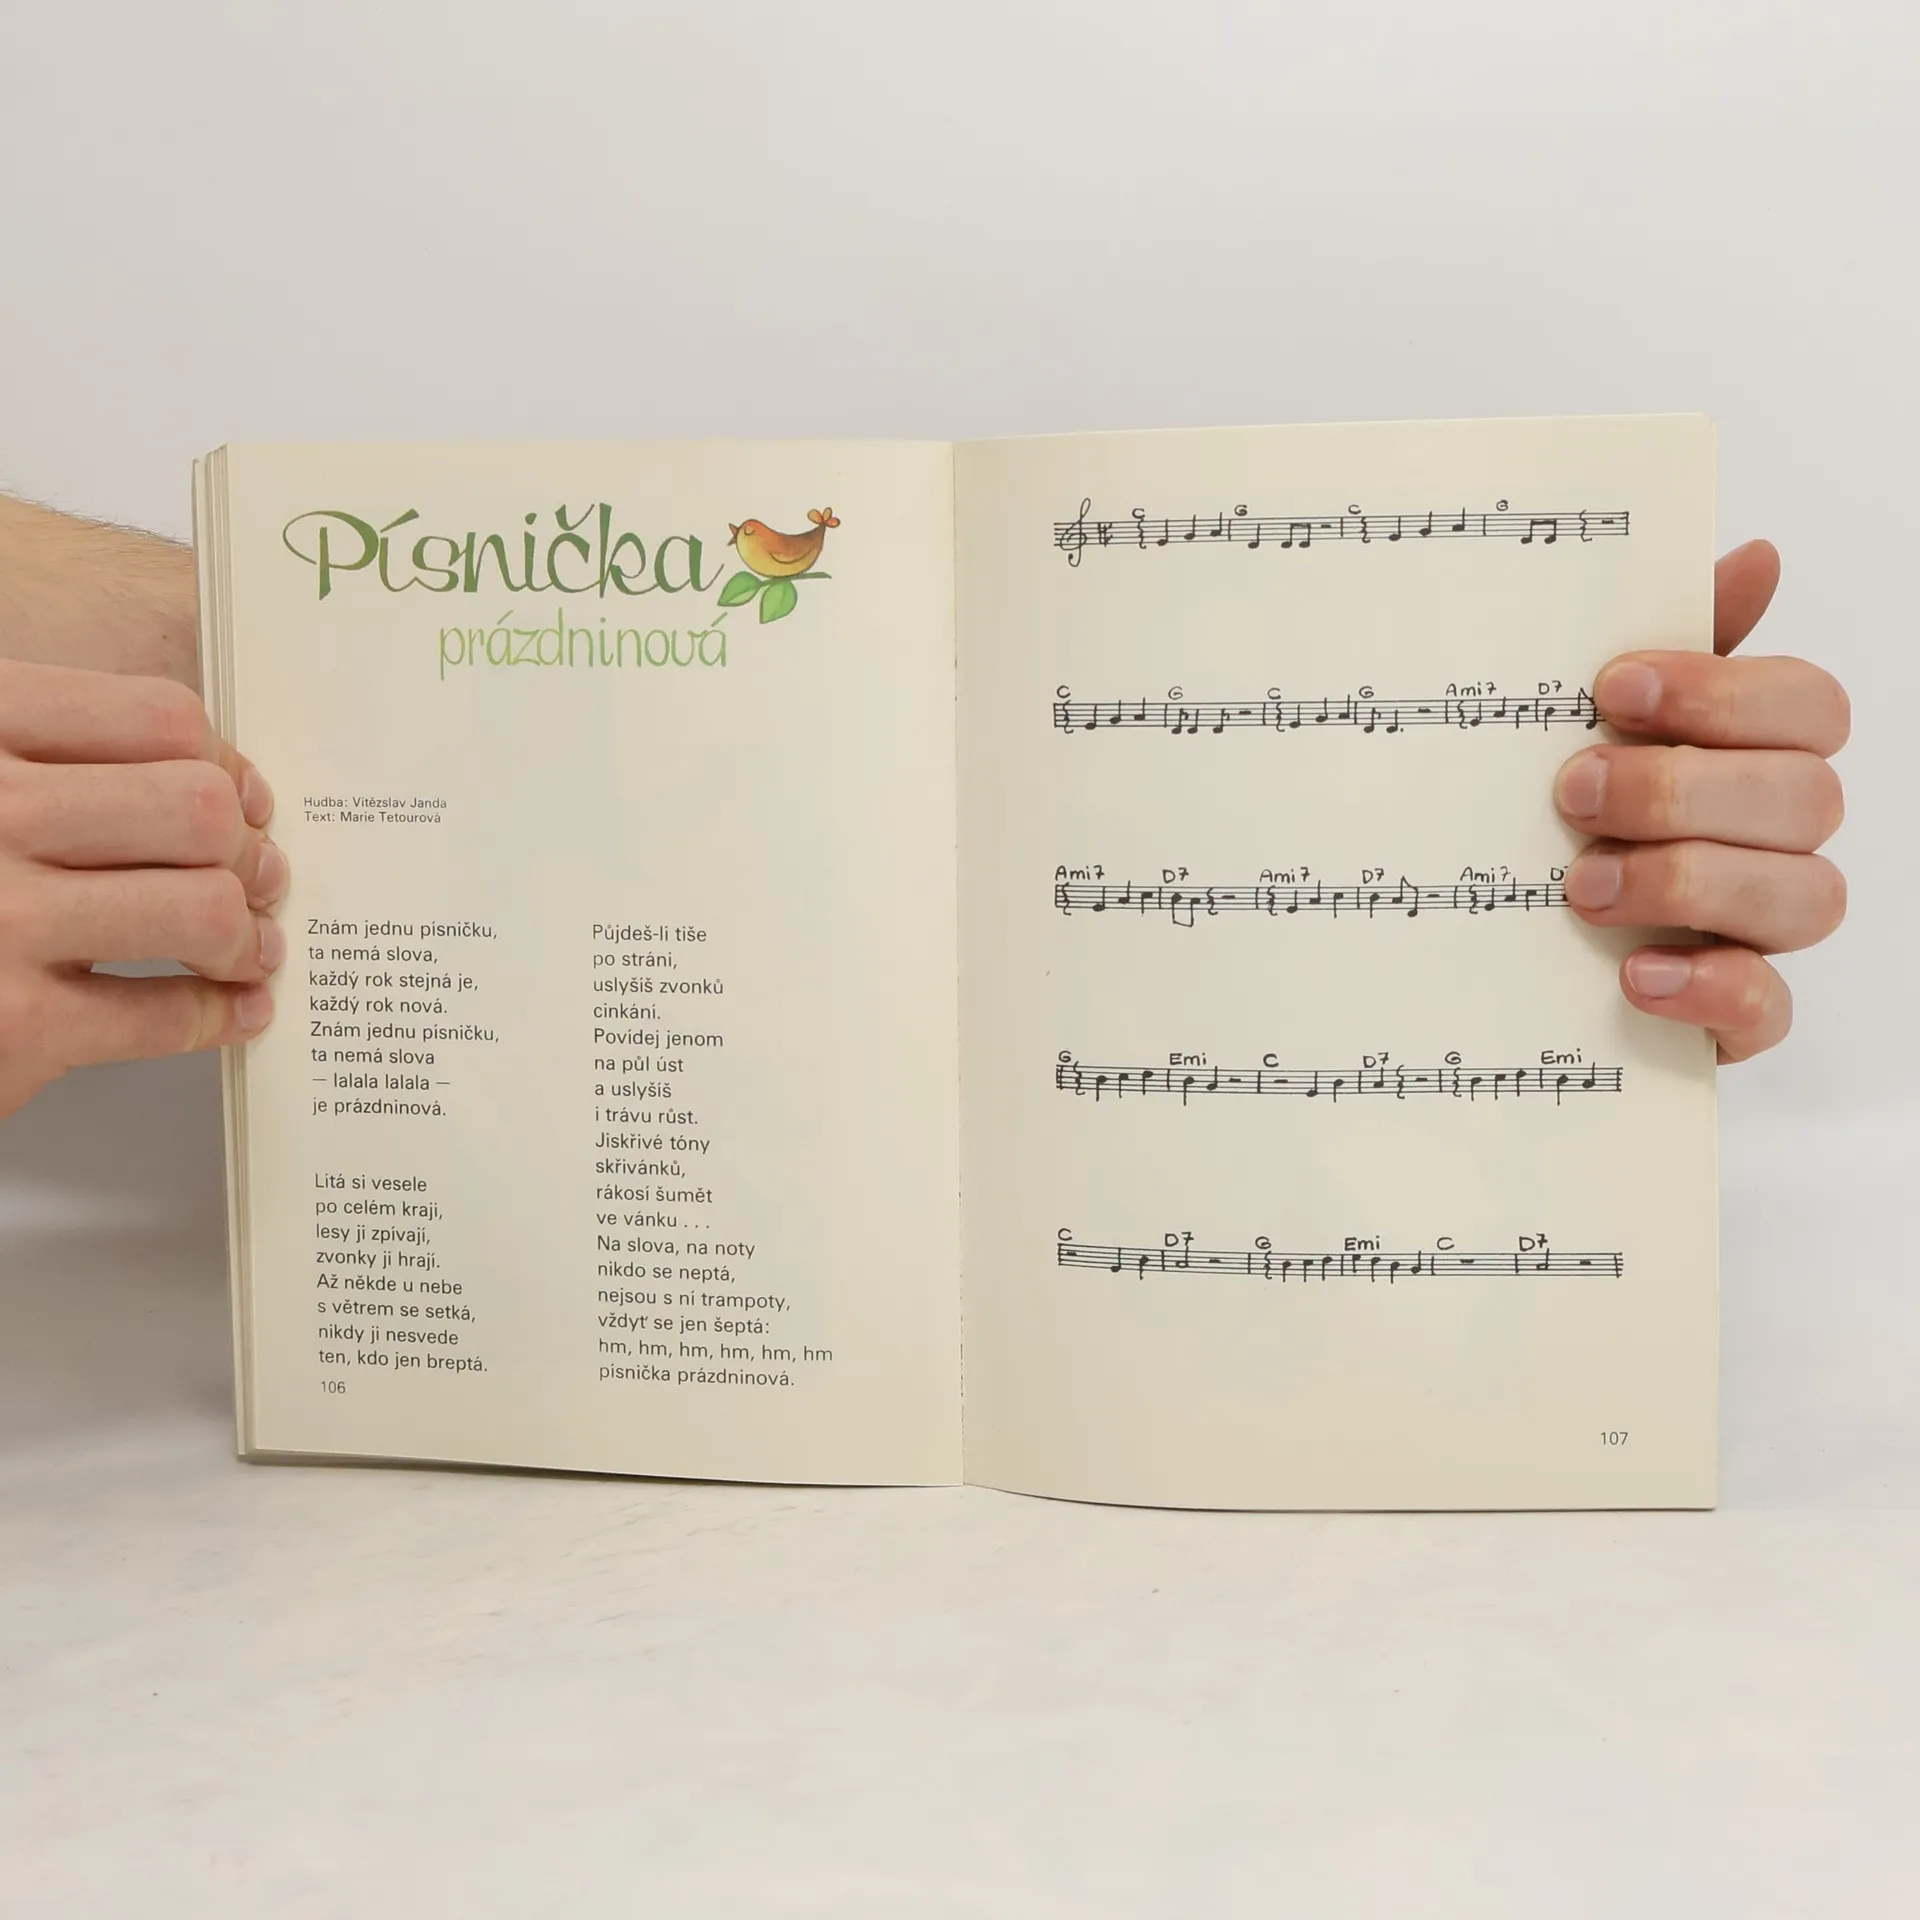 Písnička
prázdninová
Hudba: Vítězslav Janda
Text: Marie Tetourová
Znám jednu písničku,
ta nemá slova,
každý rok stejná je,
každý rok nová.
Znám jednu písničku,
ta nemá slova
— lalala lalala —
je prázdninová.
Lítá si vesele
po celém kraji,
lesy ji zpívají,
zvonky ji hrají.
Až někde u nebe
s větrem se setká,
nikdy ji nesvede
ten, kdo jen breptá.
106
Půjdeš-li tiše
po stráni,
uslyšíš zvonků
cinkání.
Povídej jenom
na půl úst
a uslyšíš
i trávu růst.
Jiskřivé tóny
skřivánků,
rákosí šumět
ve vánku . . .
Na slova, na noty
nikdo se neptá,
nejsou s ní trampoty,
vždyť se jen šeptá:
hm, hm, hm, hm, hm, hm
písnička prázdninová.
C G C G
C G C G Ami7 D7
Ami7 D7 Ami7 D7 Ami7
G Emi C D7 G Emi
C D7 G Emi C D7
107